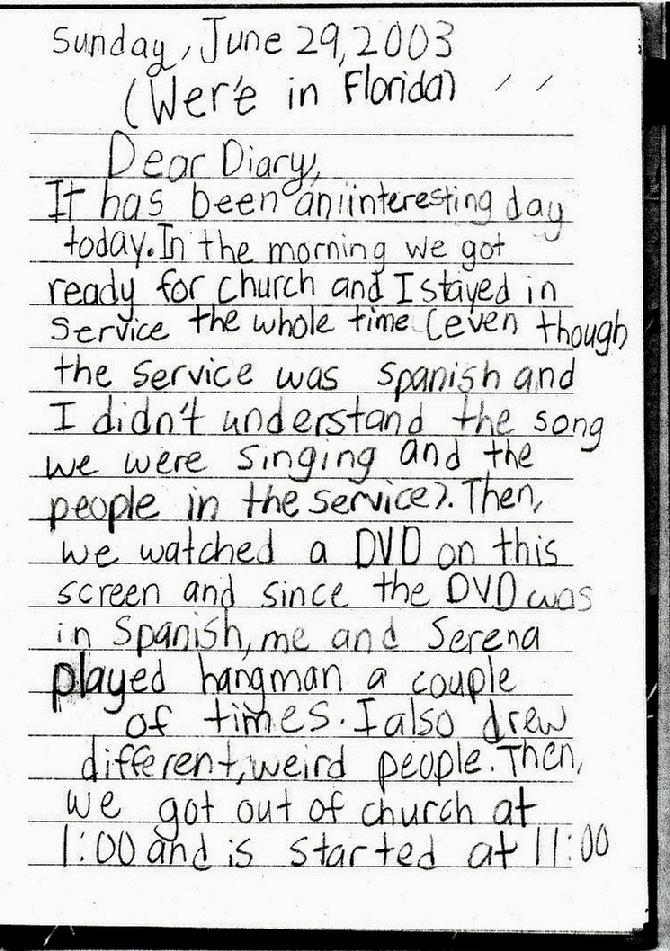 Sunday, June 29, 2003
(Wer'e in Florida)
Dear Diary,
It has been an iinteresting day
today. In the morning we got
ready for church and I stayed in
service the whole time (even though
the service was spanish and
I didn't understand the song
we were singing and the
people in the service). Then,
we watched a DVD on this
screen and since the DVD was
in Spanish, me and Serena
played hangman a couple
of times. I also drew
different, weird people. Then,
we got out of church at
1:00 and is started at 11:00